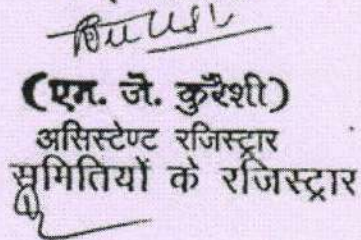 (एम. जे. कुरैशी)
असिस्टेण्ट रजिस्ट्रार
समितियों के रजिस्ट्रार